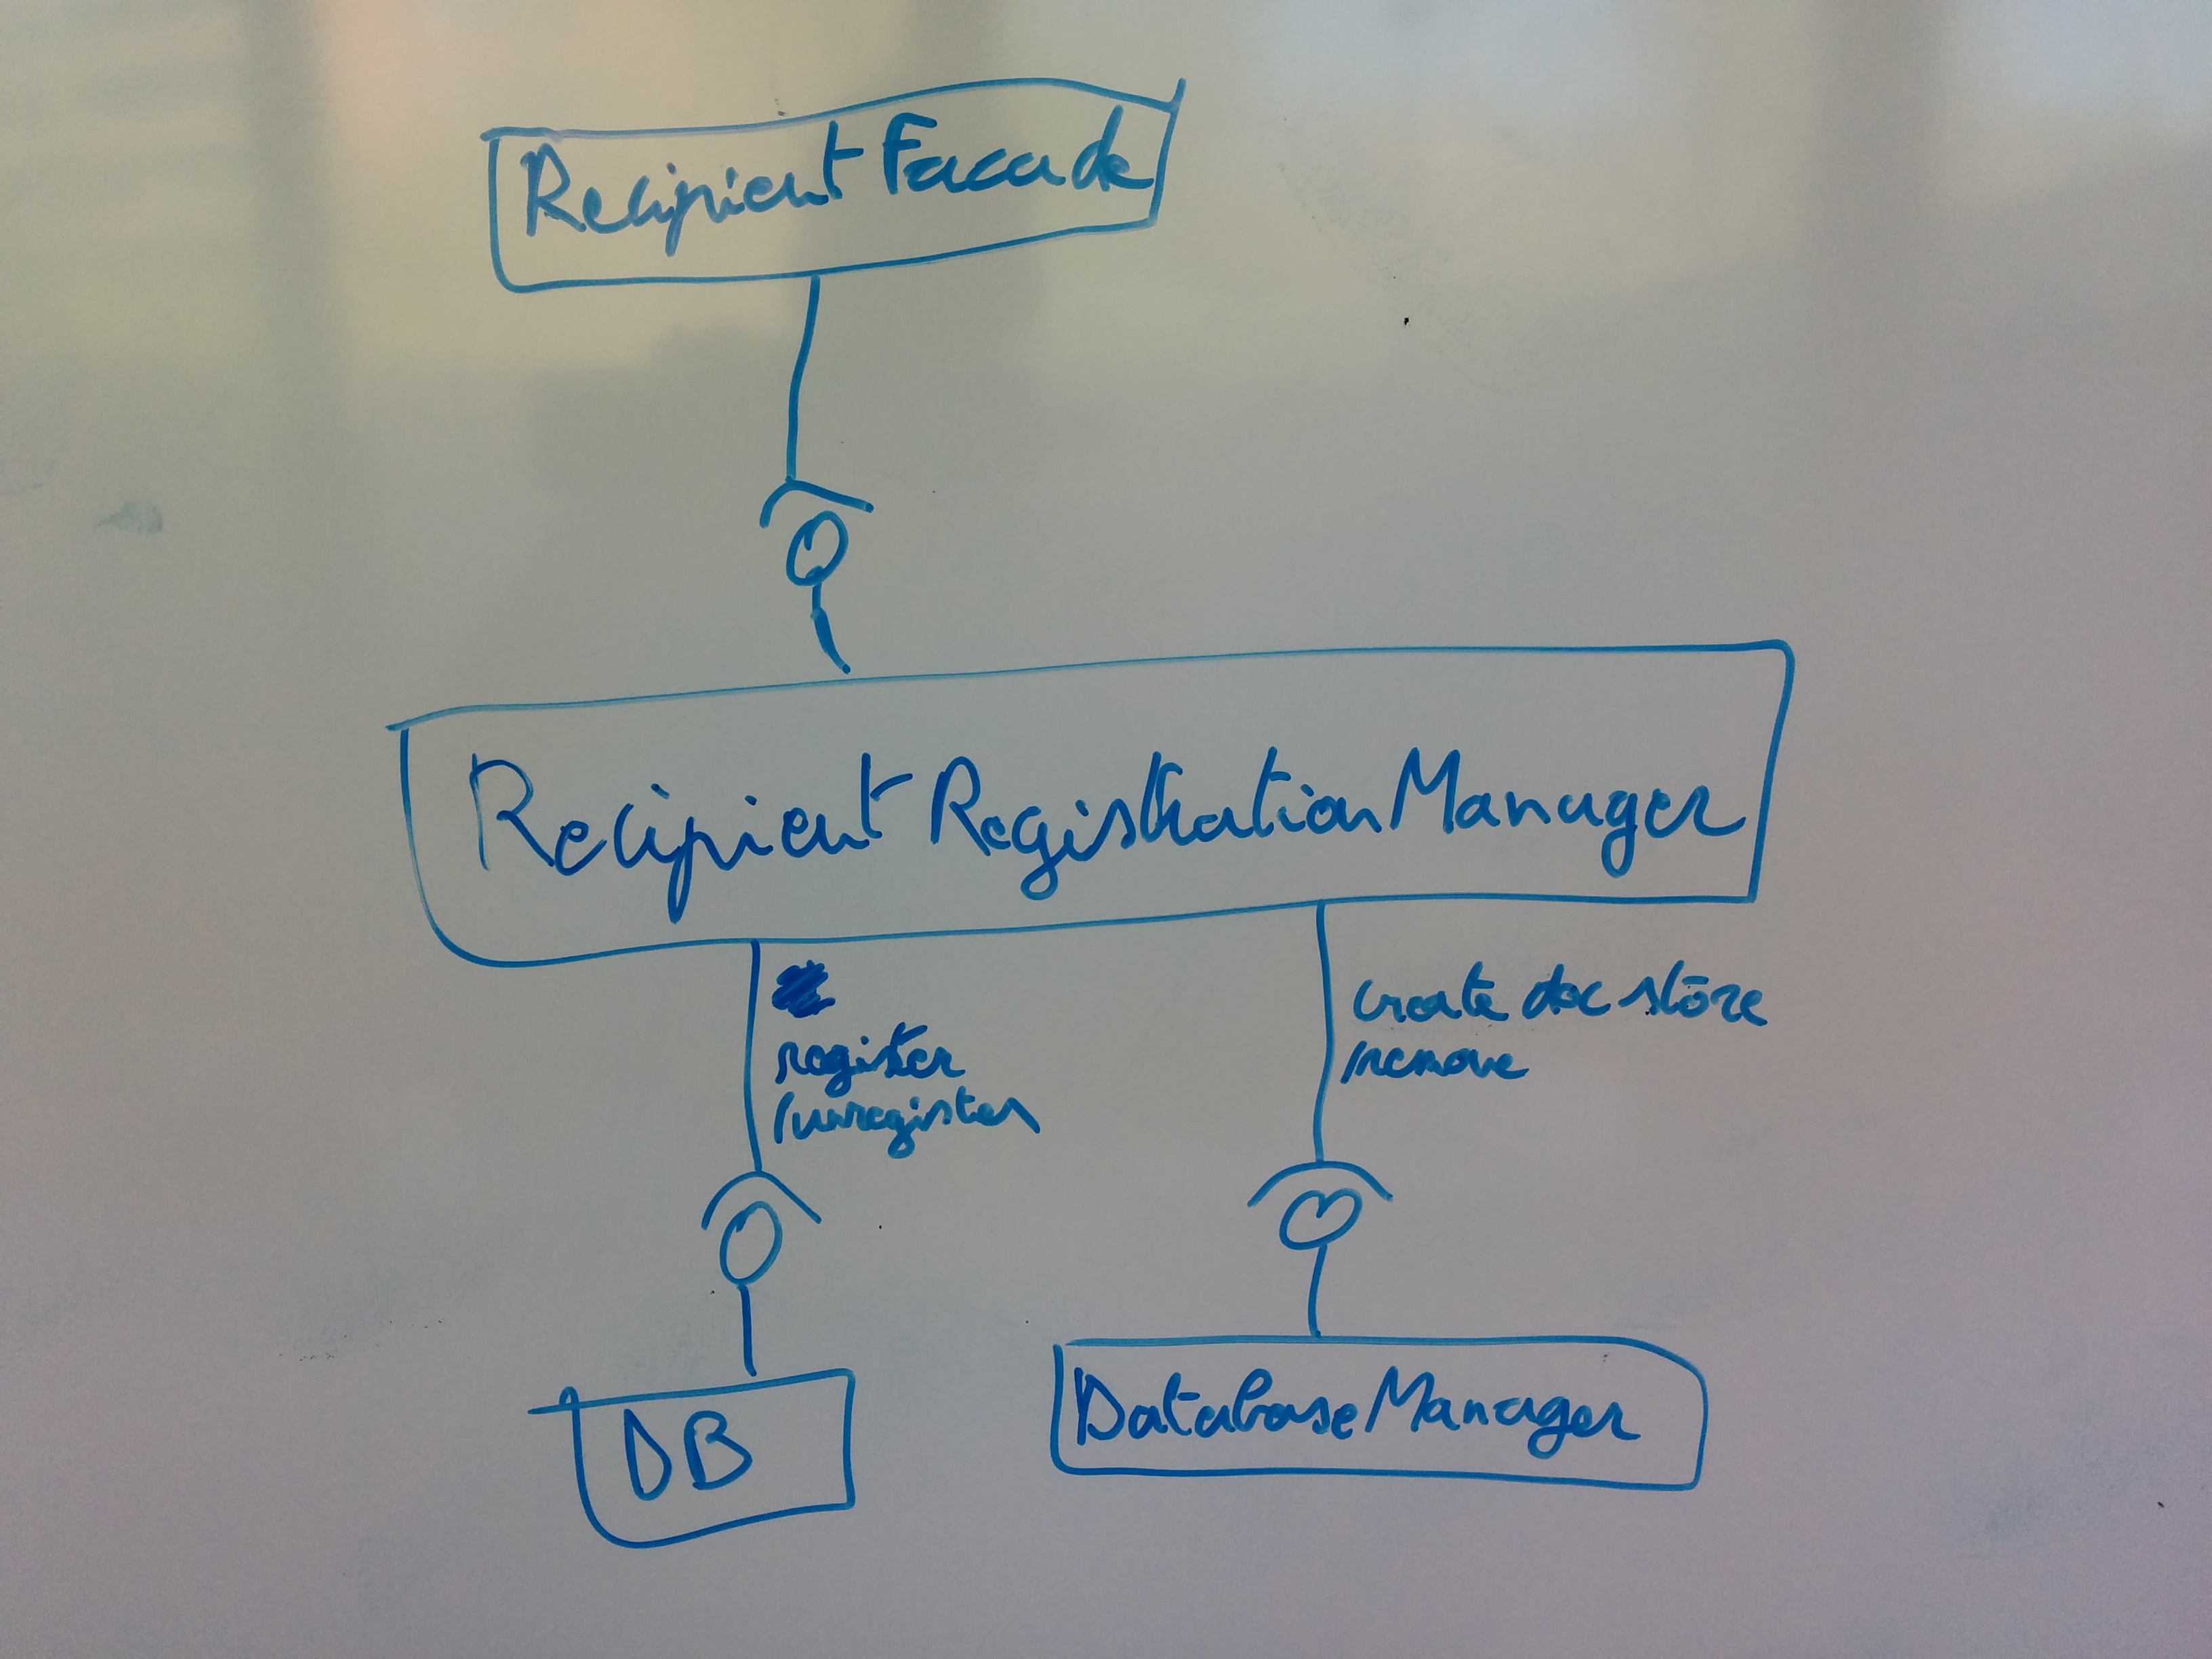 Recipient Facade
Recipient Registration Manager
register
/unregister
create doc store
/remove
DB
Database Manager